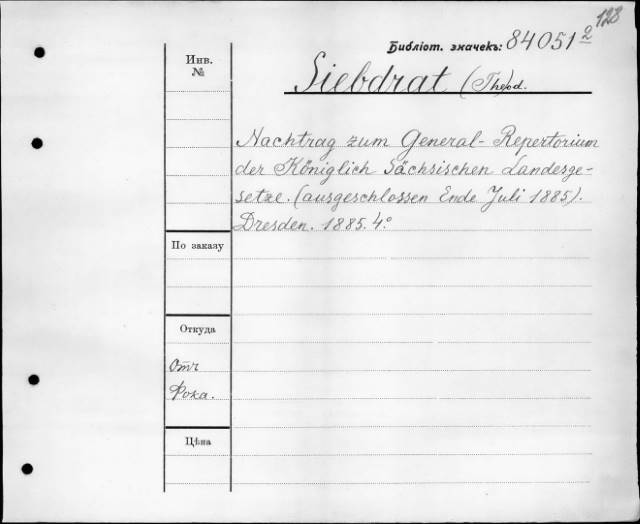 128
Библіот. значекъ: 84051²
Инв.
№
Siebdrat (Theod.
Nachtrag zum General-Repertorium
der Königlich Sächsischen Landesge-
setze. (ausgeschlossen Ende Juli 1885).
Dresden. 1885. 4°
По заказу
Откуда
Отъ
Фока.
Цѣна